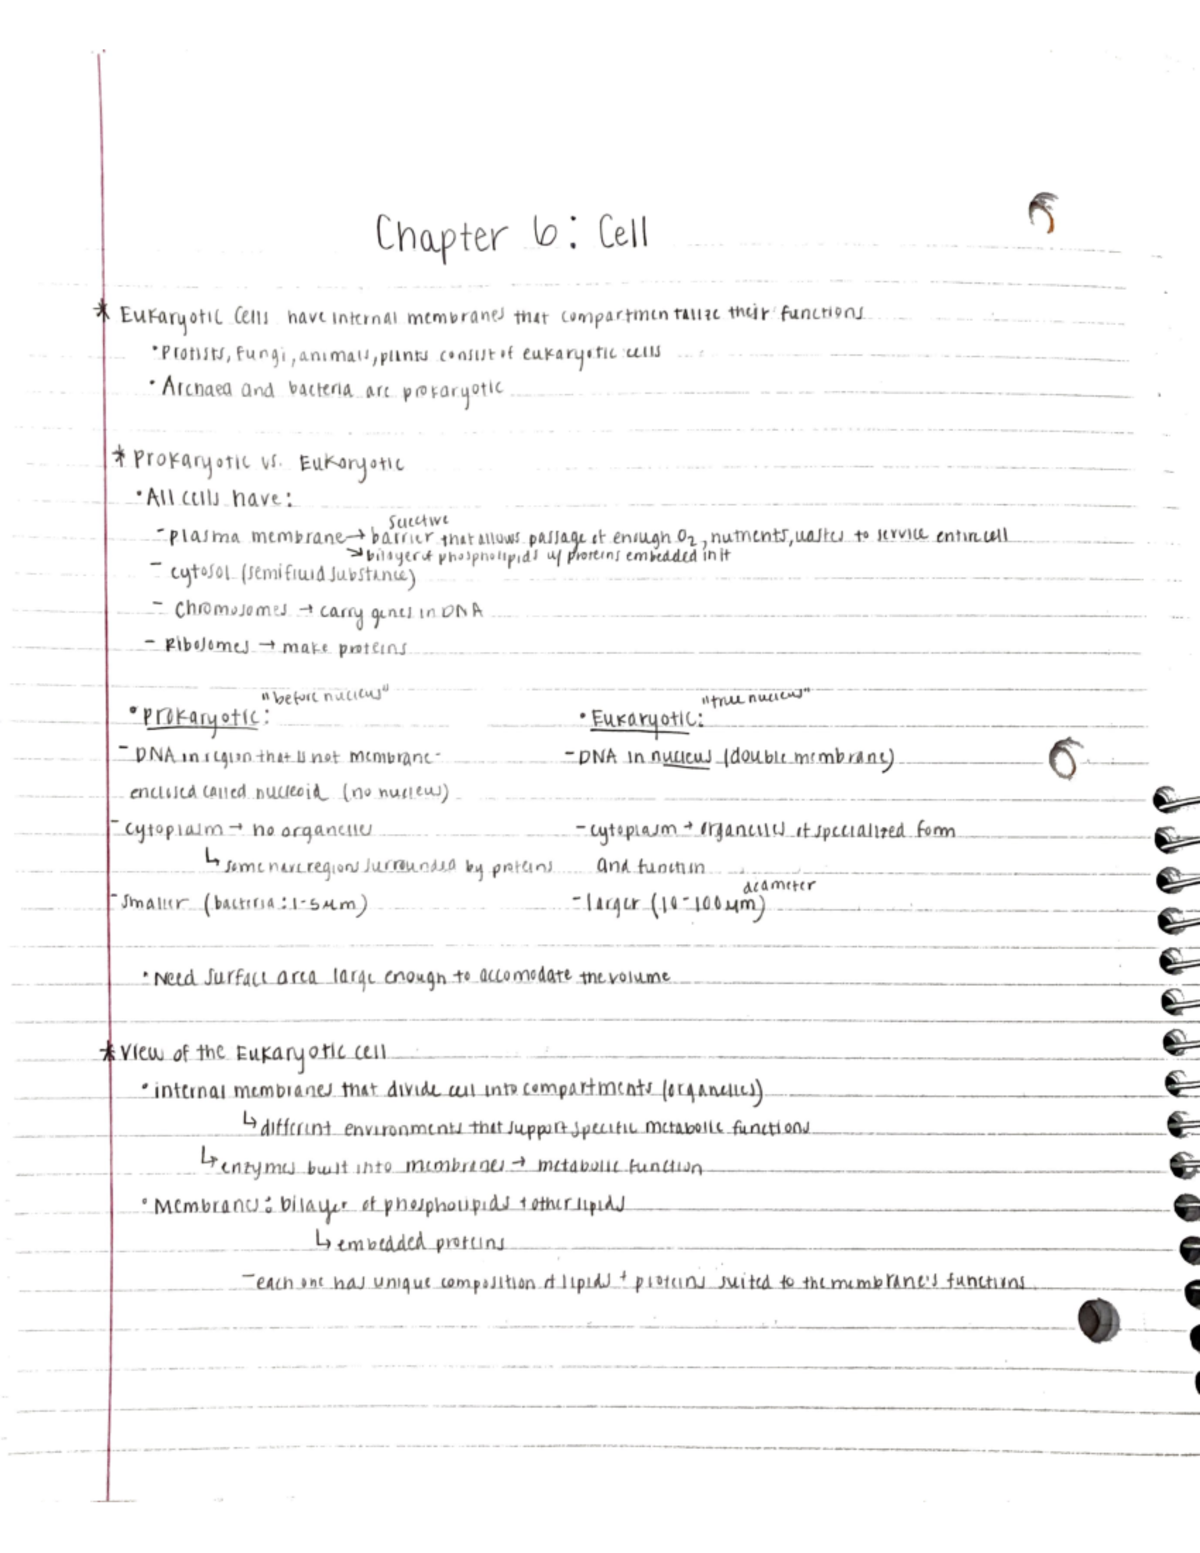 Chapter 6: Cell
* Eukaryotic Cells have internal membranes that compartmentalize their functions
• Protists, Fungi, animals, plants consist of eukaryotic cells
• Archaea and bacteria are prokaryotic
* Prokaryotic vs. Eukaryotic
• All cells have:
selective
- plasma membrane → barrier that allows passage of enough O₂, nutrients, wastes to service entire cell
↘ bilayer of phospholipids w/ proteins embedded in it
- cytosol (semifluid substance)
- Chromosomes → carry genes in DNA
- Ribosomes → make proteins
• Prokaryotic: "before nucleus"
- DNA in region that is not membrane-
enclosed called nucleoid (no nucleus)
- cytoplasm → no organelles
↳ some have regions surrounded by proteins
- smaller (bacteria: 1-5 μm)
• Eukaryotic: "true nucleus"
- DNA in nucleus (double membrane)
- cytoplasm → organelles of specialized form
and function
- larger (10-100 μm) diameter
• Need surface area large enough to accomodate the volume
* View of the Eukaryotic cell
• internal membranes that divide cell into compartments (organelles)
↳ different environments that support specific metabolic functions
↳ enzymes built into membranes → metabolic function
• Membranes: bilayer of phospholipids + other lipids
↳ embedded proteins
- each one has unique composition of lipids + proteins suited to the membrane's functions